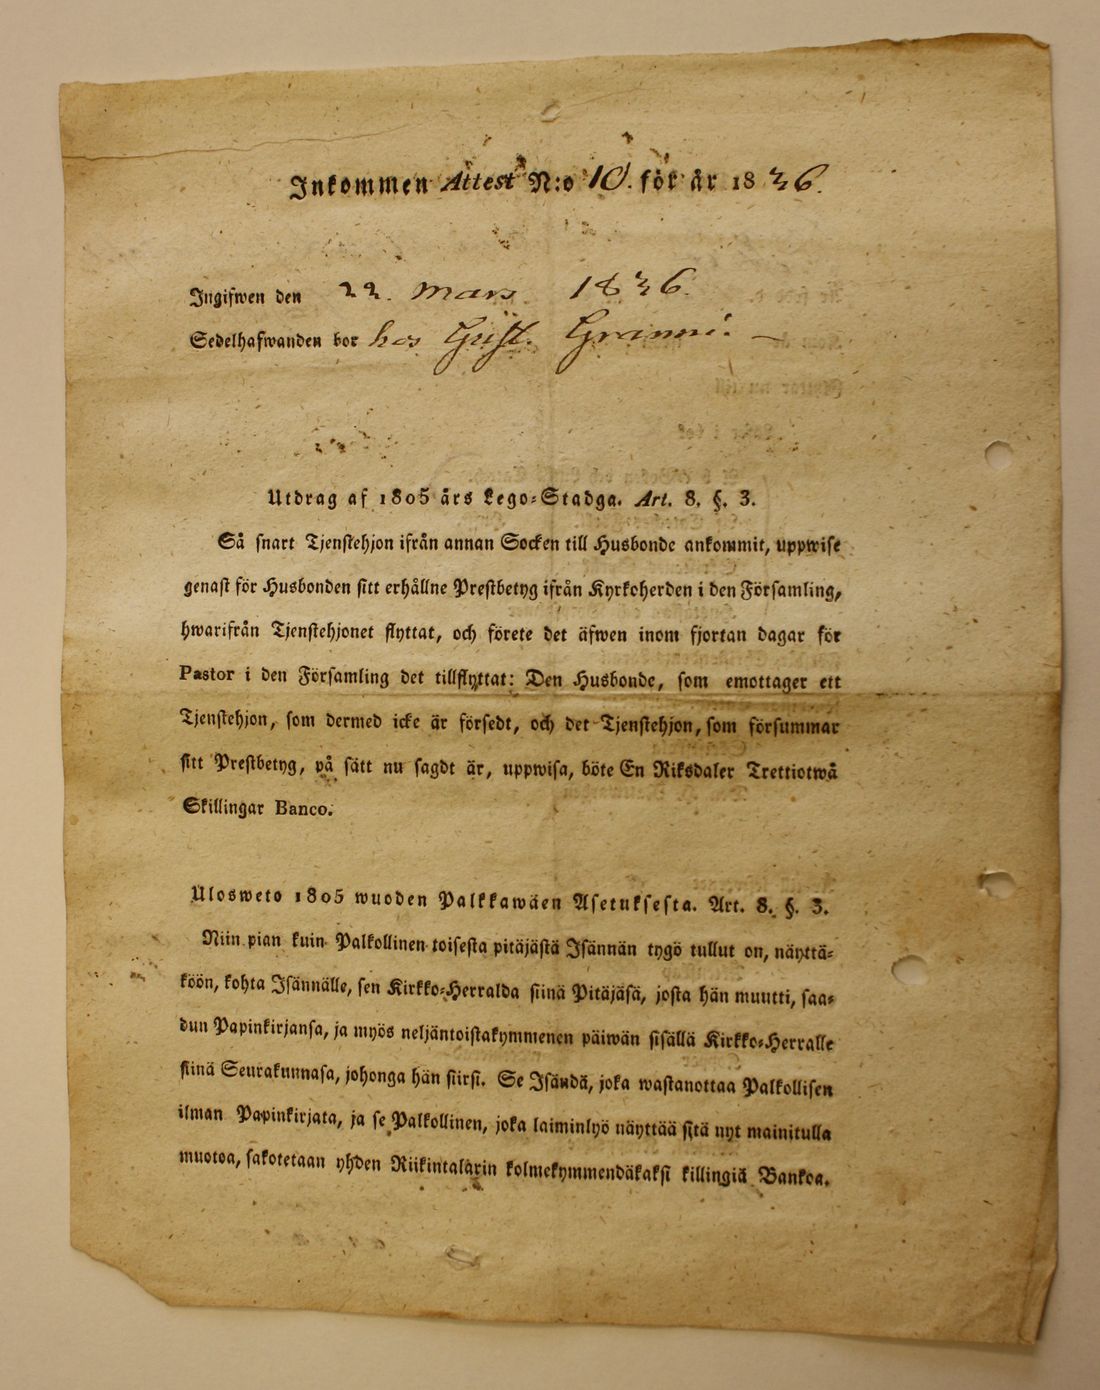 Inkommen Attest N:o 10. för år 1836.
Ingifwen den 22. Mars 1836.
Sedelhafwanden bor hos Gust.
Utdrag af 1805 års Lego-Stadga. Art. 8. §. 3.
Så snart Tjenstehjon ifrån annan Socken till Husbonde ankommit, uppwise
genast för Husbonden sitt erhållne Prestbetyg ifrån Kyrkoherden i den Församling,
hwarifrån Tjenstehjonet flyttat, och förete det äfwen inom fjortan dagar för
Pastor i den Församling det tillflyttat: Den Husbonde, som emottager ett
Tjenstehjon, som dermed icke är försedt, och det Tjenstehjon, som försummar
sitt Prestbetyg, på sätt nu sagdt är, uppwisa, böte En Riksdaler Trettiotwå
Skillingar Banco.
Ulosweto 1805 wuoden Palkkawäen Asetuksesta. Art. 8. §. 3.
Niin pian kuin Palkollinen toisesta pitäjästä Isännän tygö tullut on, näyttä-
köön, kohta Isännälle, sen Kirkko-Herralda siinä Pitäjäsä, josta hän muutti, saa-
dun Papinkirjansa, ja myös neljäntoistakymmenen päiwän sisällä Kirkko-Herralle
siinä Seurakunnasa, johonga hän siirsi. Se Isändä, joka wastanottaa Palkollisen
ilman Papinkirjata, ja se Palkollinen, joka laiminlyö näyttää sitä nyt mainitulla
muotoa, sakotetaan yhden Riikintalarin kolmekymmendäkaksi killingiä Bankoa.